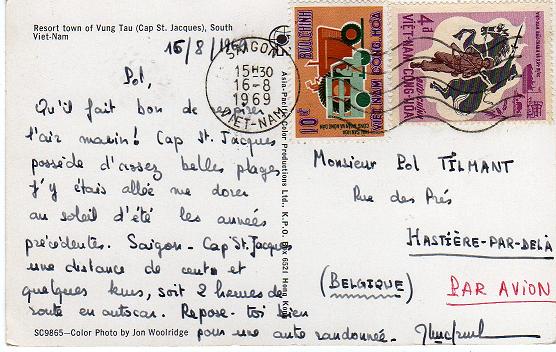 Resort town of Vung Tau (Cap St. Jacques), South
Viet-Nam
15/8/1969
Pol,
Qu'il fait bon de respirer
l'air marin! Cap St. Jacques
possède d'assez belles plages
J'y étais allée me dorer
au soleil d'été les années
précédentes. Saigon - Cap St. Jacques
une distance de cent et
quelques kms, soit 2 heures de
route en autocar. Repose-toi bien
pour une autre randonnée.
SC9865—Color Photo by Jon Woolridge
Asia-Pacific Color Productions Ltd., K.P.O. Box 6521 Hong Kong
SAIGON
15H30
16-8
1969
VIET-NAM
BUU-CHINH
VIỆT NAM CỘNG HÒA
10đ
4đ
VIỆT-NAM CỘNG-HÒA
Monsieur Pol TILMANT
Rue des Prés
HASTIÈRE-PAR-DELÀ
(BELGIQUE)
PAR AVION